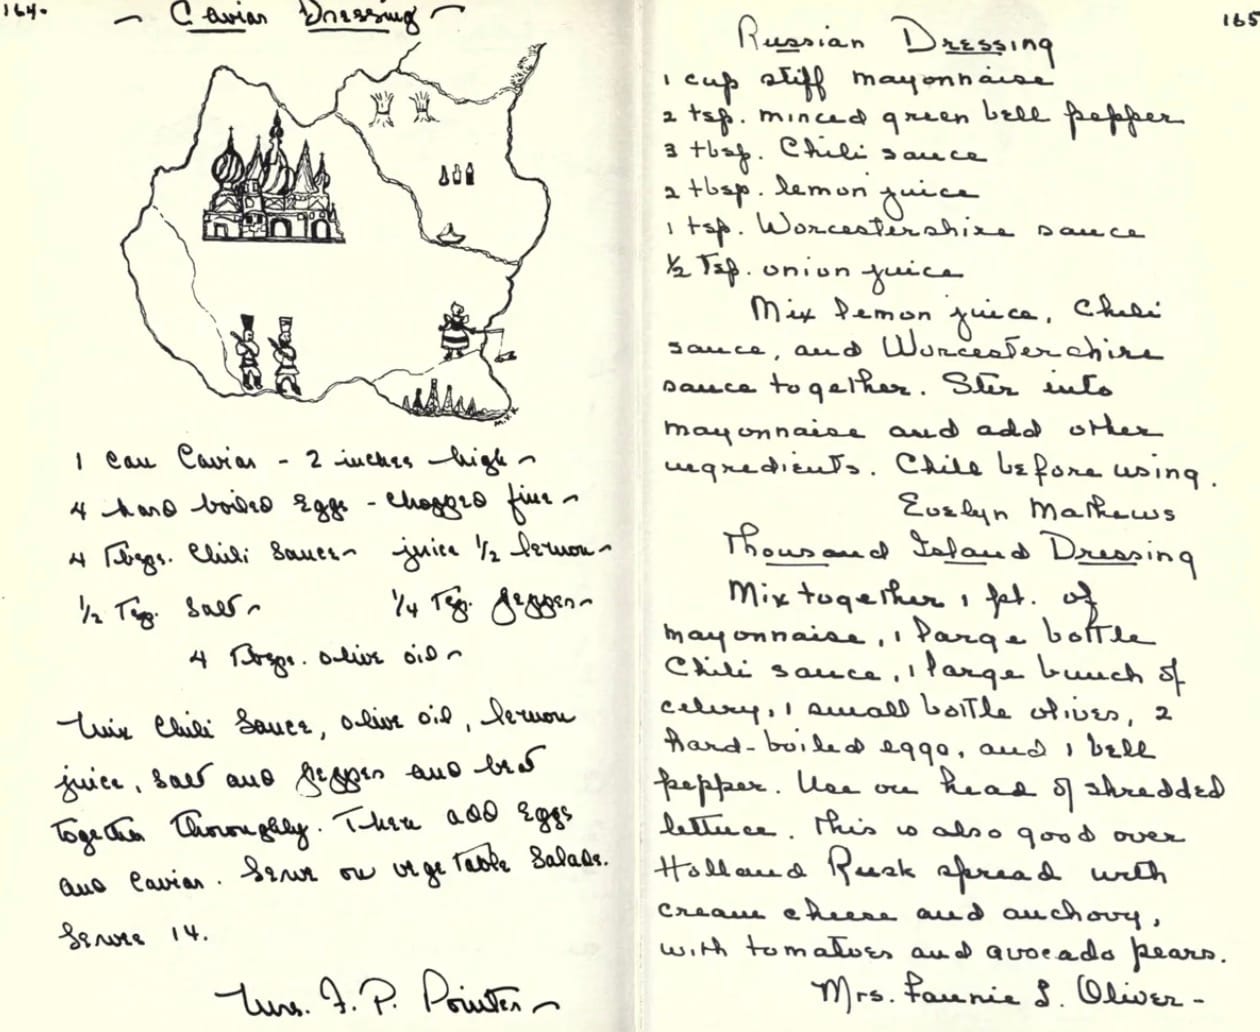 164.
~ Caviar Dressing ~
M.K.K.
1 can Caviar - 2 inches high ~
4 hard boiled Eggs - chopped fine ~
4 Tbsps. Chili Sauce ~ juice 1/2 lemon ~
1/2 Tsp. Salt ~ 1/4 Tsp. Pepper ~
4 Tbsps. olive oil ~
Mix Chili Sauce, olive oil, lemon
juice, salt and pepper and beat
together thoroughly. Then add Eggs
and Caviar. Serve on vegetable Salads.
Serves 14.
Mrs. F. P. Pointer ~
165
Russian Dressing
1 cup stiff mayonnaise
2 tsp. minced green bell pepper
3 tbsp. Chili sauce
2 tbsp. lemon juice
1 tsp. Worcestershire sauce
1/2 Tsp. onion juice
Mix lemon juice, Chili
sauce, and Worcestershire
sauce together. Stir into
mayonnaise and add other
ingredients. Chill before using.
Evelyn Mathews
Thousand Island Dressing
Mix together 1 pt. of
mayonnaise, 1 large bottle
Chili sauce, 1 large bunch of
celery, 1 small bottle olives, 2
hard-boiled eggs, and 1 bell
pepper. Use on head of shredded
lettuce. This is also good over
Holland Rusk spread with
cream cheese and anchovy,
with tomatoes and avocado pears.
Mrs. Fannie L. Oliver -